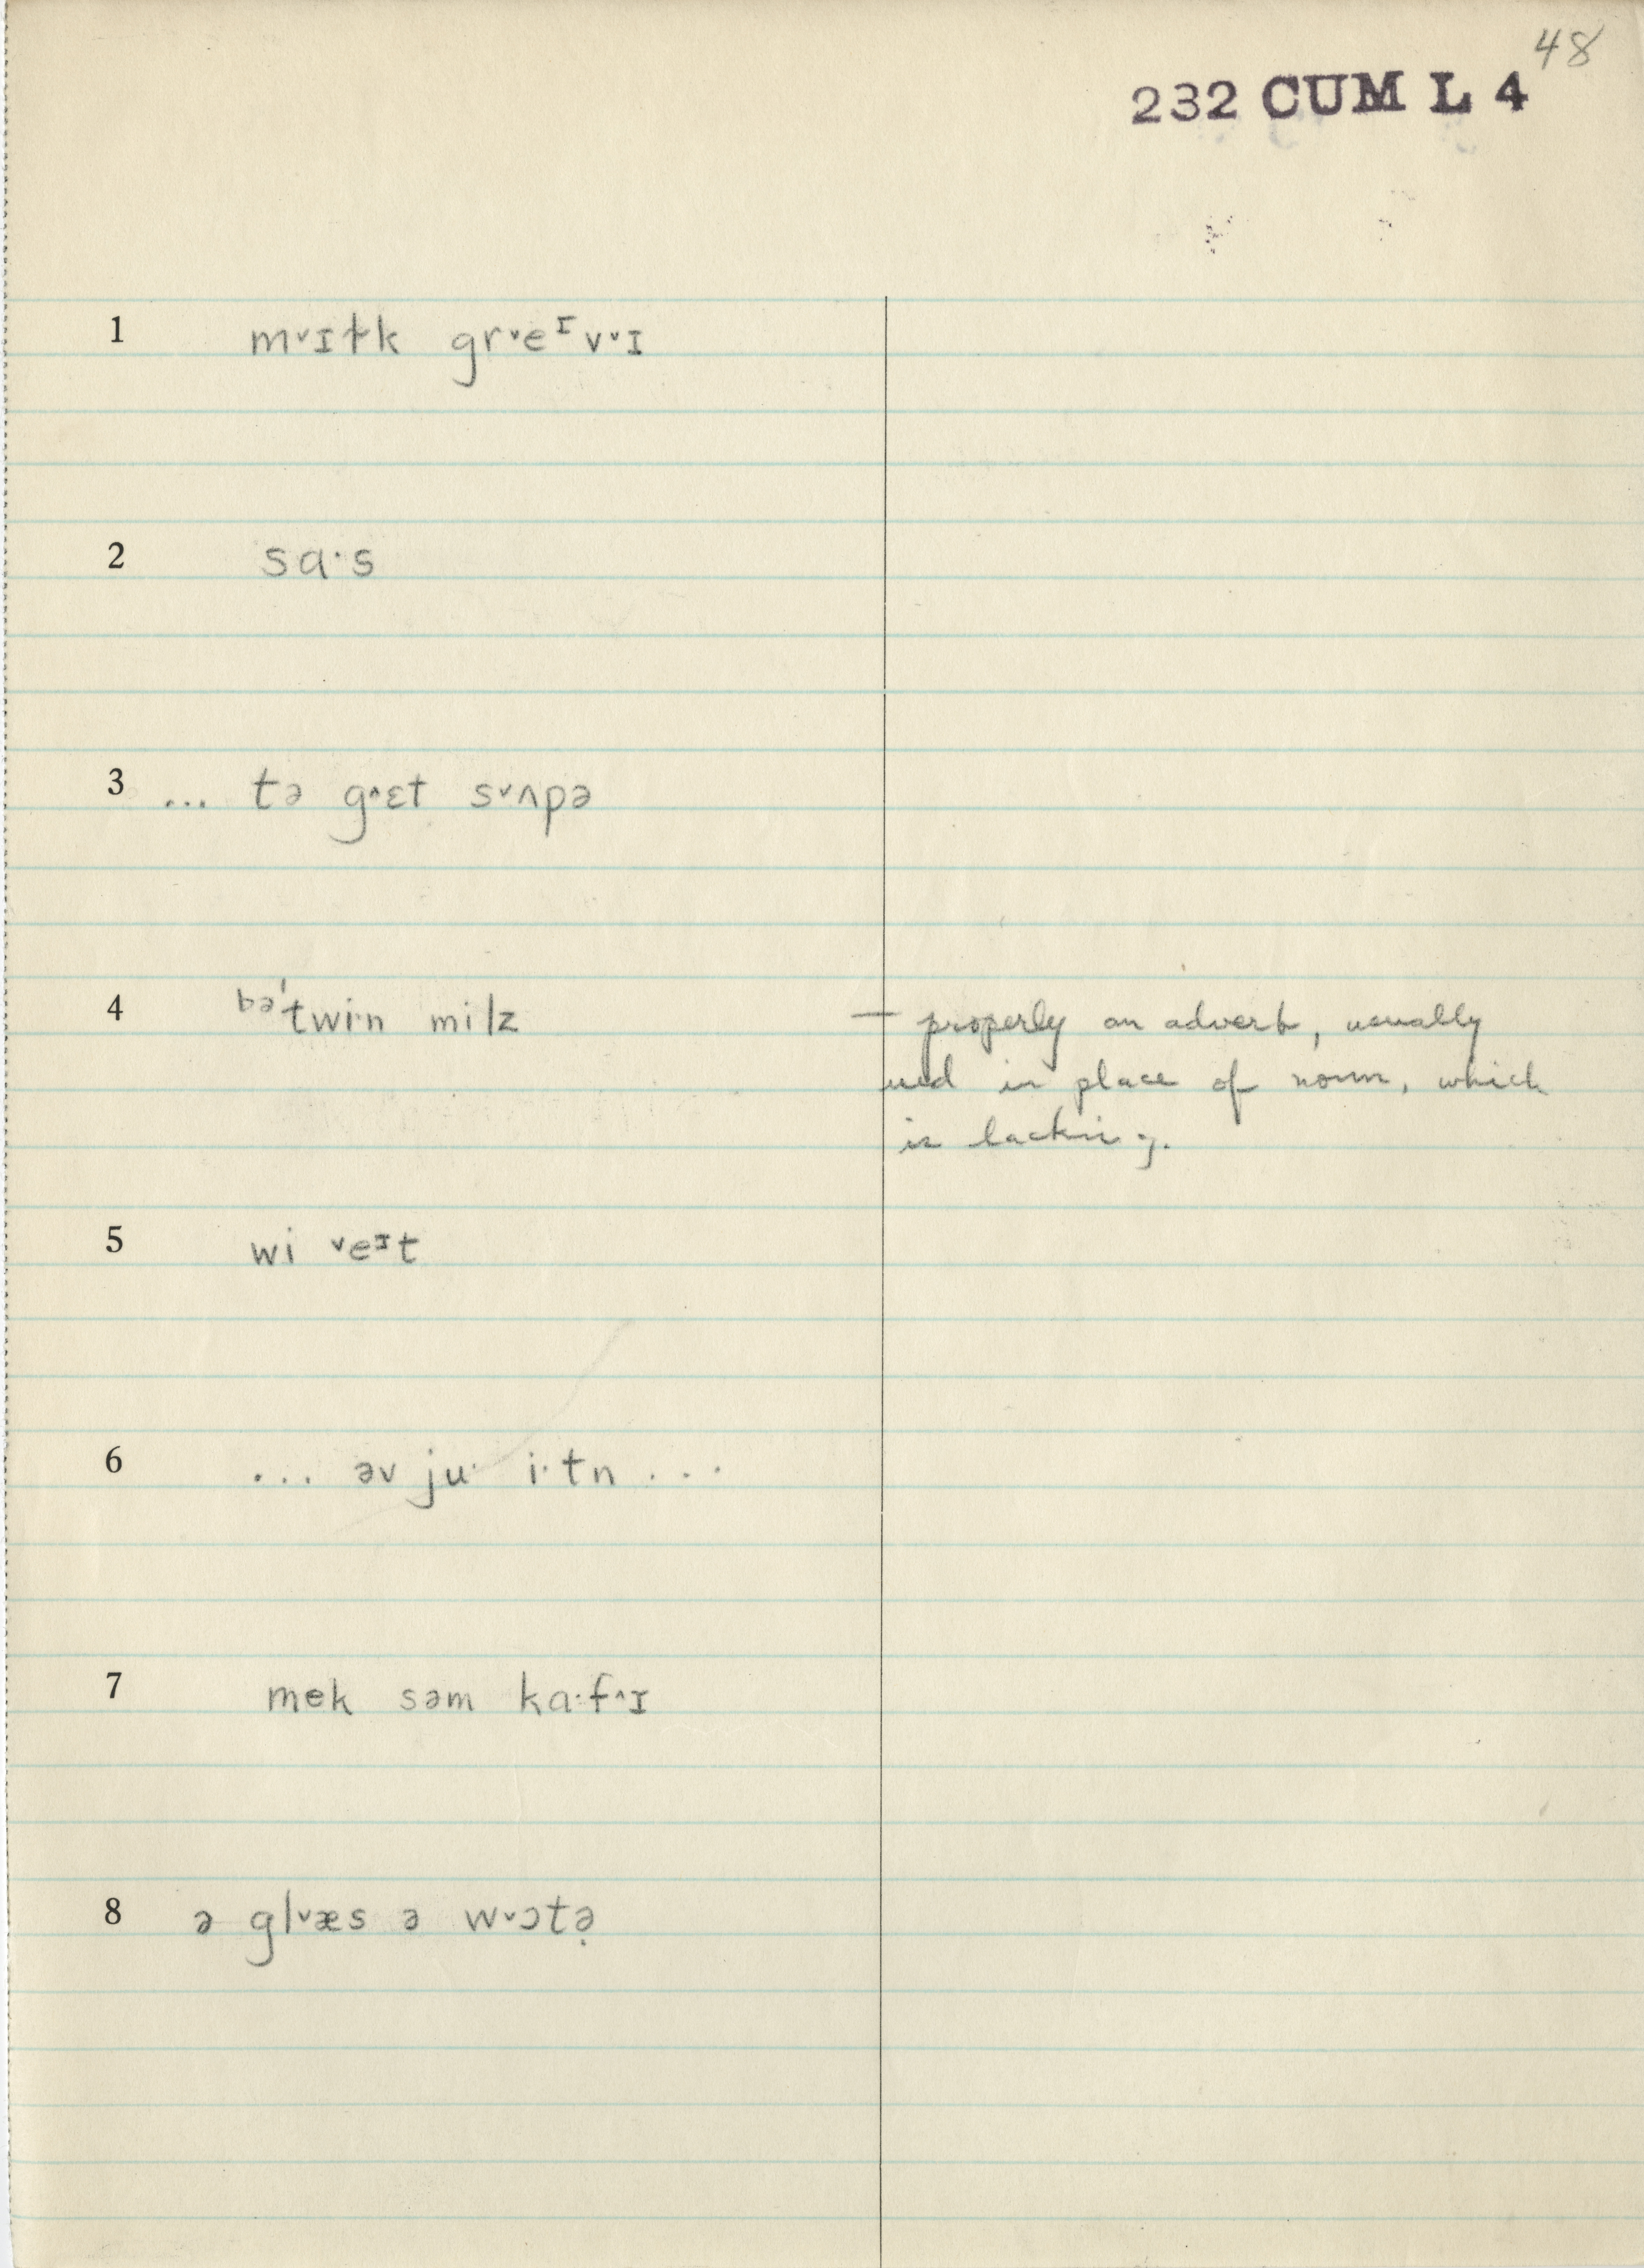 48
232 CUM L 4
1 mˇɪɫk grˇeᶦvˇɪ
2 sɑ·s
3 ... tə g^ɛt sˇʌpə
4 ᵇᵊ'twi·n milz — properly an adverb, usually
used in place of noun, which
is lacking.
5 wi ˇeᶦt
6 ... əv ju· i·tn ...
7 mek səm kɑ·f^ɪ
8 ə glˇæs ə wˇɔtə̣